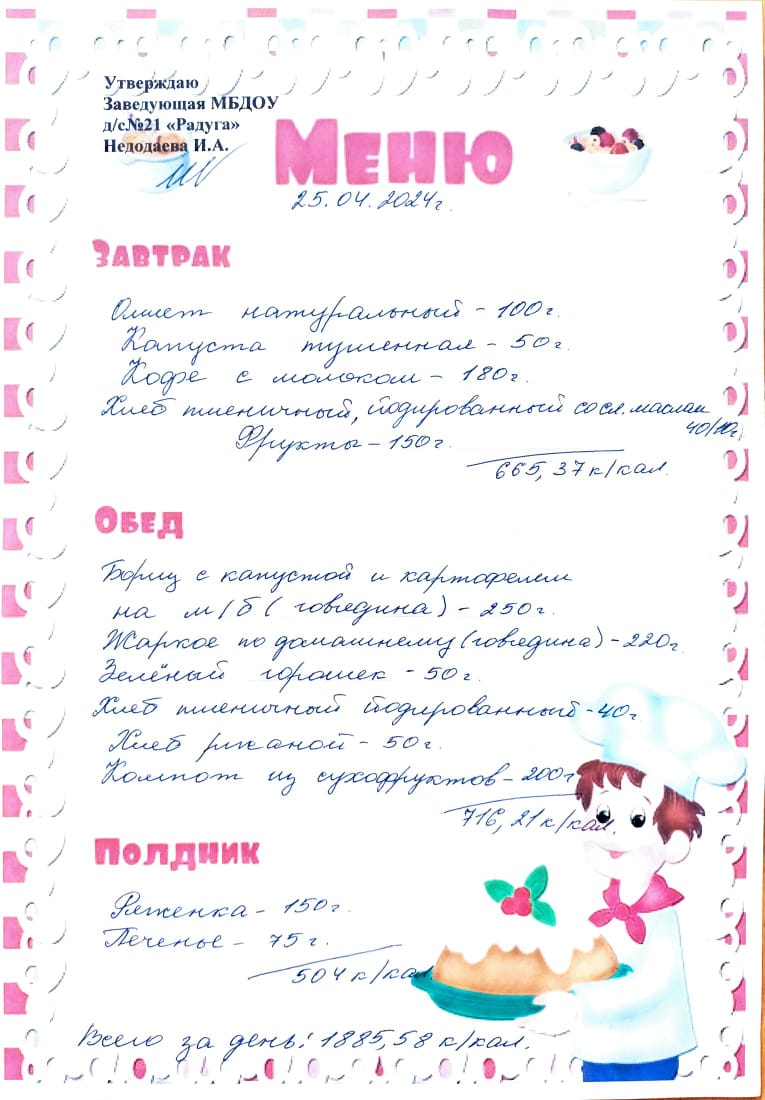 Утверждаю
Заведующая МБДОУ
д/с№21 «Радуга»
Недодаева И.А.
Меню
25.04.2024г.
Завтрак
Омлет натуральный - 100г.
Капуста тушенная - 50г.
Кофе с молоком - 180г.
Хлеб пшеничный, йодированный со сл. маслом
40/10г.
Фрукты - 150г.
665,37 к/кал.
Обед
Борщ с капустой и картофелем
на м/б (говядина) - 250г.
Жаркое по домашнему (говядина) - 220г.
Зелёный горошек - 50г.
Хлеб пшеничный йодированный - 40г.
Хлеб ржаной - 50г.
Компот из сухофруктов - 200г
716,21 к/кал.
Полдник
Ряженка - 150г.
Печенье - 75г.
504 к/кал.
Всего за день: 1885,58 к/кал.